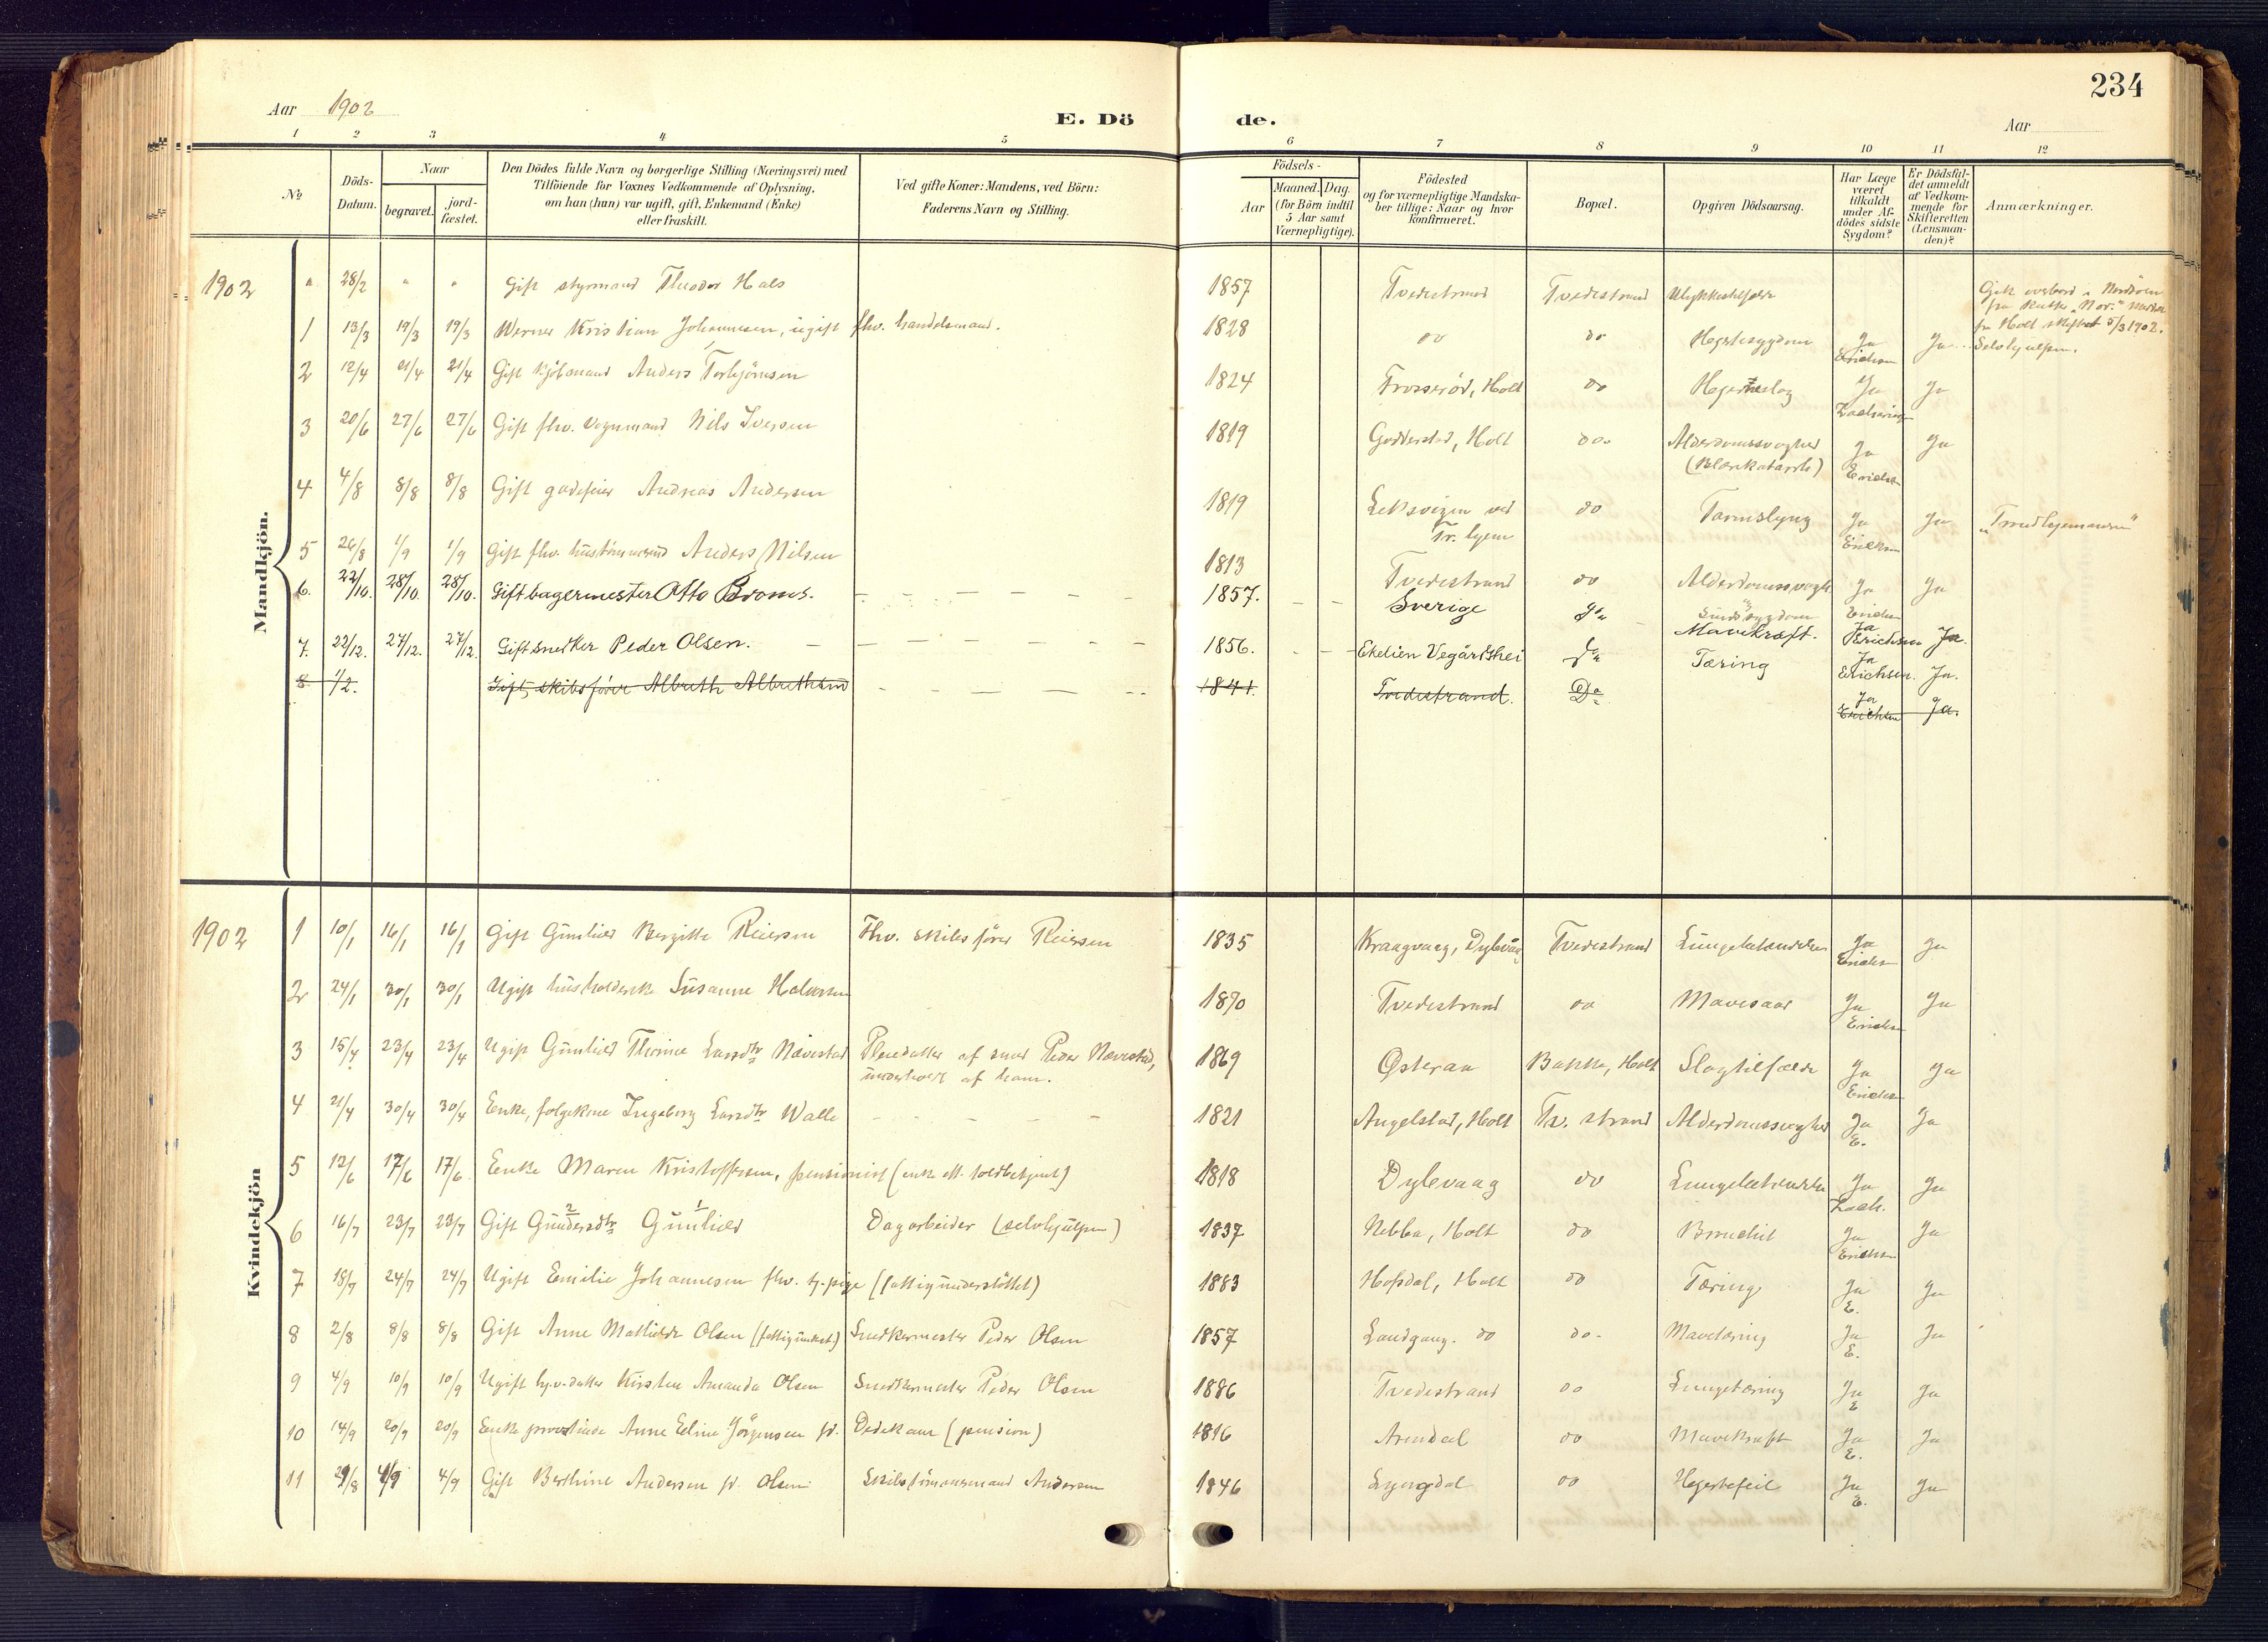 234
Aar 1902
E. Dö
de.
Aar
1 2 3 4 5 6 7 8 9 10 11 12
No
Döds-Datum.
Naar
begravet.
jord-fæstet.
Den Dödes fulde Navn og borgerlige Stilling (Næringsvei) med
Tilföiende for Voxnes Vedkommende af Oplysning,
om han (hun) var ugift, gift, Enkemand (Enke)
eller fraskilt.
Ved gifte Koner: Mandens, ved Börn:
Faderens Navn og Stilling.
Födsels-
Aar
Maaned. Dag.
(for Börn indtil
5 Aar samt
Værnepligtige).
Födested
og for værnepligtige Mandska-
ber tillige: Naar og hvor
konfirmeret.
Bopæl.
Opgiven Dödsaarsag.
Har Læge
været
tilkaldt
under Af-
dödes sidste
Sygdom?
Er Dödsfal-
det anmeldt
af Vedkom-
mende for
Skifteretten
(Lensman-
den)?
Anmærkninger.
Mandkjön.
1902 " 28/2 " " Gift styrmand Theodor Hals 1857 Tvedestrand Tvedestrand Ulykkestilfælde Gik overbord i Nordsöen
fra Holt 5/3 1902.
1 13/3 19/3 19/3 Werner Kristian Johannesen, ugift fhv. handelsmand. 1828 do do Hjertesygdom Ja Erichsen Ja Selvhjulpen.
2 12/4 21/4 21/4 Gift kjöbmand Anders Torbjörnsen 1824 Holt do Hjerteslag Ja Ja
3 20/6 27/6 27/6 Gift fhv. Vognmand Nils Iversen 1819 Godderstad, Holt do. Alderdomssvaghed
(Blærekatarrh) Ja Erichs Ja
4 4/8 8/8 8/8 Gift gadefeier Andreas Andersen 1819 Leksvigen ved
Tr. hjem do Tarmslyng Ja Erichsen Ja "Trondhjemmeren"
5 26/8 1/9 1/9 Gift fhv. Anders Nilsen 1813 Tvedestrand do Alderdomssvagh Ja Erichsen Ja
6. 22/10. 28/10. 28/10. Gift bagermester Otto Broms. 1857. Sverige Do Sindssygdom
Mavekræft. Ja Erichsen Ja.
7. 22/12. 27/12. 27/12. Gift snedker Peder Olsen. 1856. Ekelien Vegårdshei Do Tæring Ja Erichsen. Ja.
8. 1/2. Gift, skibsfører Albreth Albrethsen 1841. Tvedestrand. Do Ja Erichsen Ja.
Kvindekjön
1902 1 10/1 16/1 16/1 Gift Gunhild Bergitte Reiersen Fhv. skibsförer Reiersen 1835 Kraagvaag, Dybvåg Tvedestrand Lungebetændelse Ja Erichs Ja
2 24/1 30/1 30/1 Ugift husholderske Susanne Halvorsen 1870 Tvedestrand do Mavesaar Ja Erichsen Ja
3 15/4 23/4 23/4 Ugift Gunhild Thorine Larsdtr Nævestad Pleiedatter af smed Peder Nævestad,
underholdt af ham. 1869 Østeraa Bakke, Holt Slagtilfælde Ja Erichsen Ja
4 21/4 30/4 30/4 Enke, folgekone Ingeborg Larsdtr Walle 1821 Angelstad, Holt Tv. strand Alderdomssvaghed Ja E. Ja
5 12/6 17/6 17/6 Enke Maren Kristoffersen, pensionist (enke eft. toldbetjent) 1818 Dybvaag do Lungebetændelse Ja Zach. Ja
6 16/7 23/7 23/7 Gift Gundersdtr 2 Gunhild 1 Dagarbeider (selvhjulpen) 1837 Nebba, Holt do Bronchit Ja Erichsen Ja
7 18/7 24/7 24/7 Ugift Emilie Johannesen fhv. tj.pige (fattigunderstöttet) 1883 Hofsdal, Holt do Tæring Ja E. Ja
8 2/8 8/8 8/8 Gift Anne Mathilde Olsen Snedkermester Peder Olsen 1857 Landgang. do do. Mavetæring Ja E. Ja
9 4/9 10/9 10/9 Ugift hj.v. datter Kirsten Amanda Olsen Snedkermester Peder Olsen 1886 Tvedestrand do Lungetæring Ja E Ja
10 14/9 20/9 20/9 Enke provstinde Anne Eline Jörgensen fd. Dedekam (pension) 1816 Arendal do Mavekræft Ja E. Ja
11 29/8 4/9 4/9 Gift Berthine Andersen fd. Olsen Skibstömmermand Andersen 1846 Lyngdal do Hjertefeil Ja E. Ja